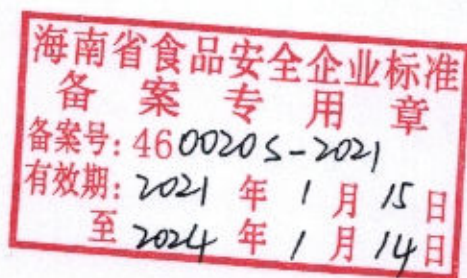 海南省食品安全企业标准
备案专用章
备案号: 460020S-2021
有效期: 2021年1月15日
至2024年1月14日